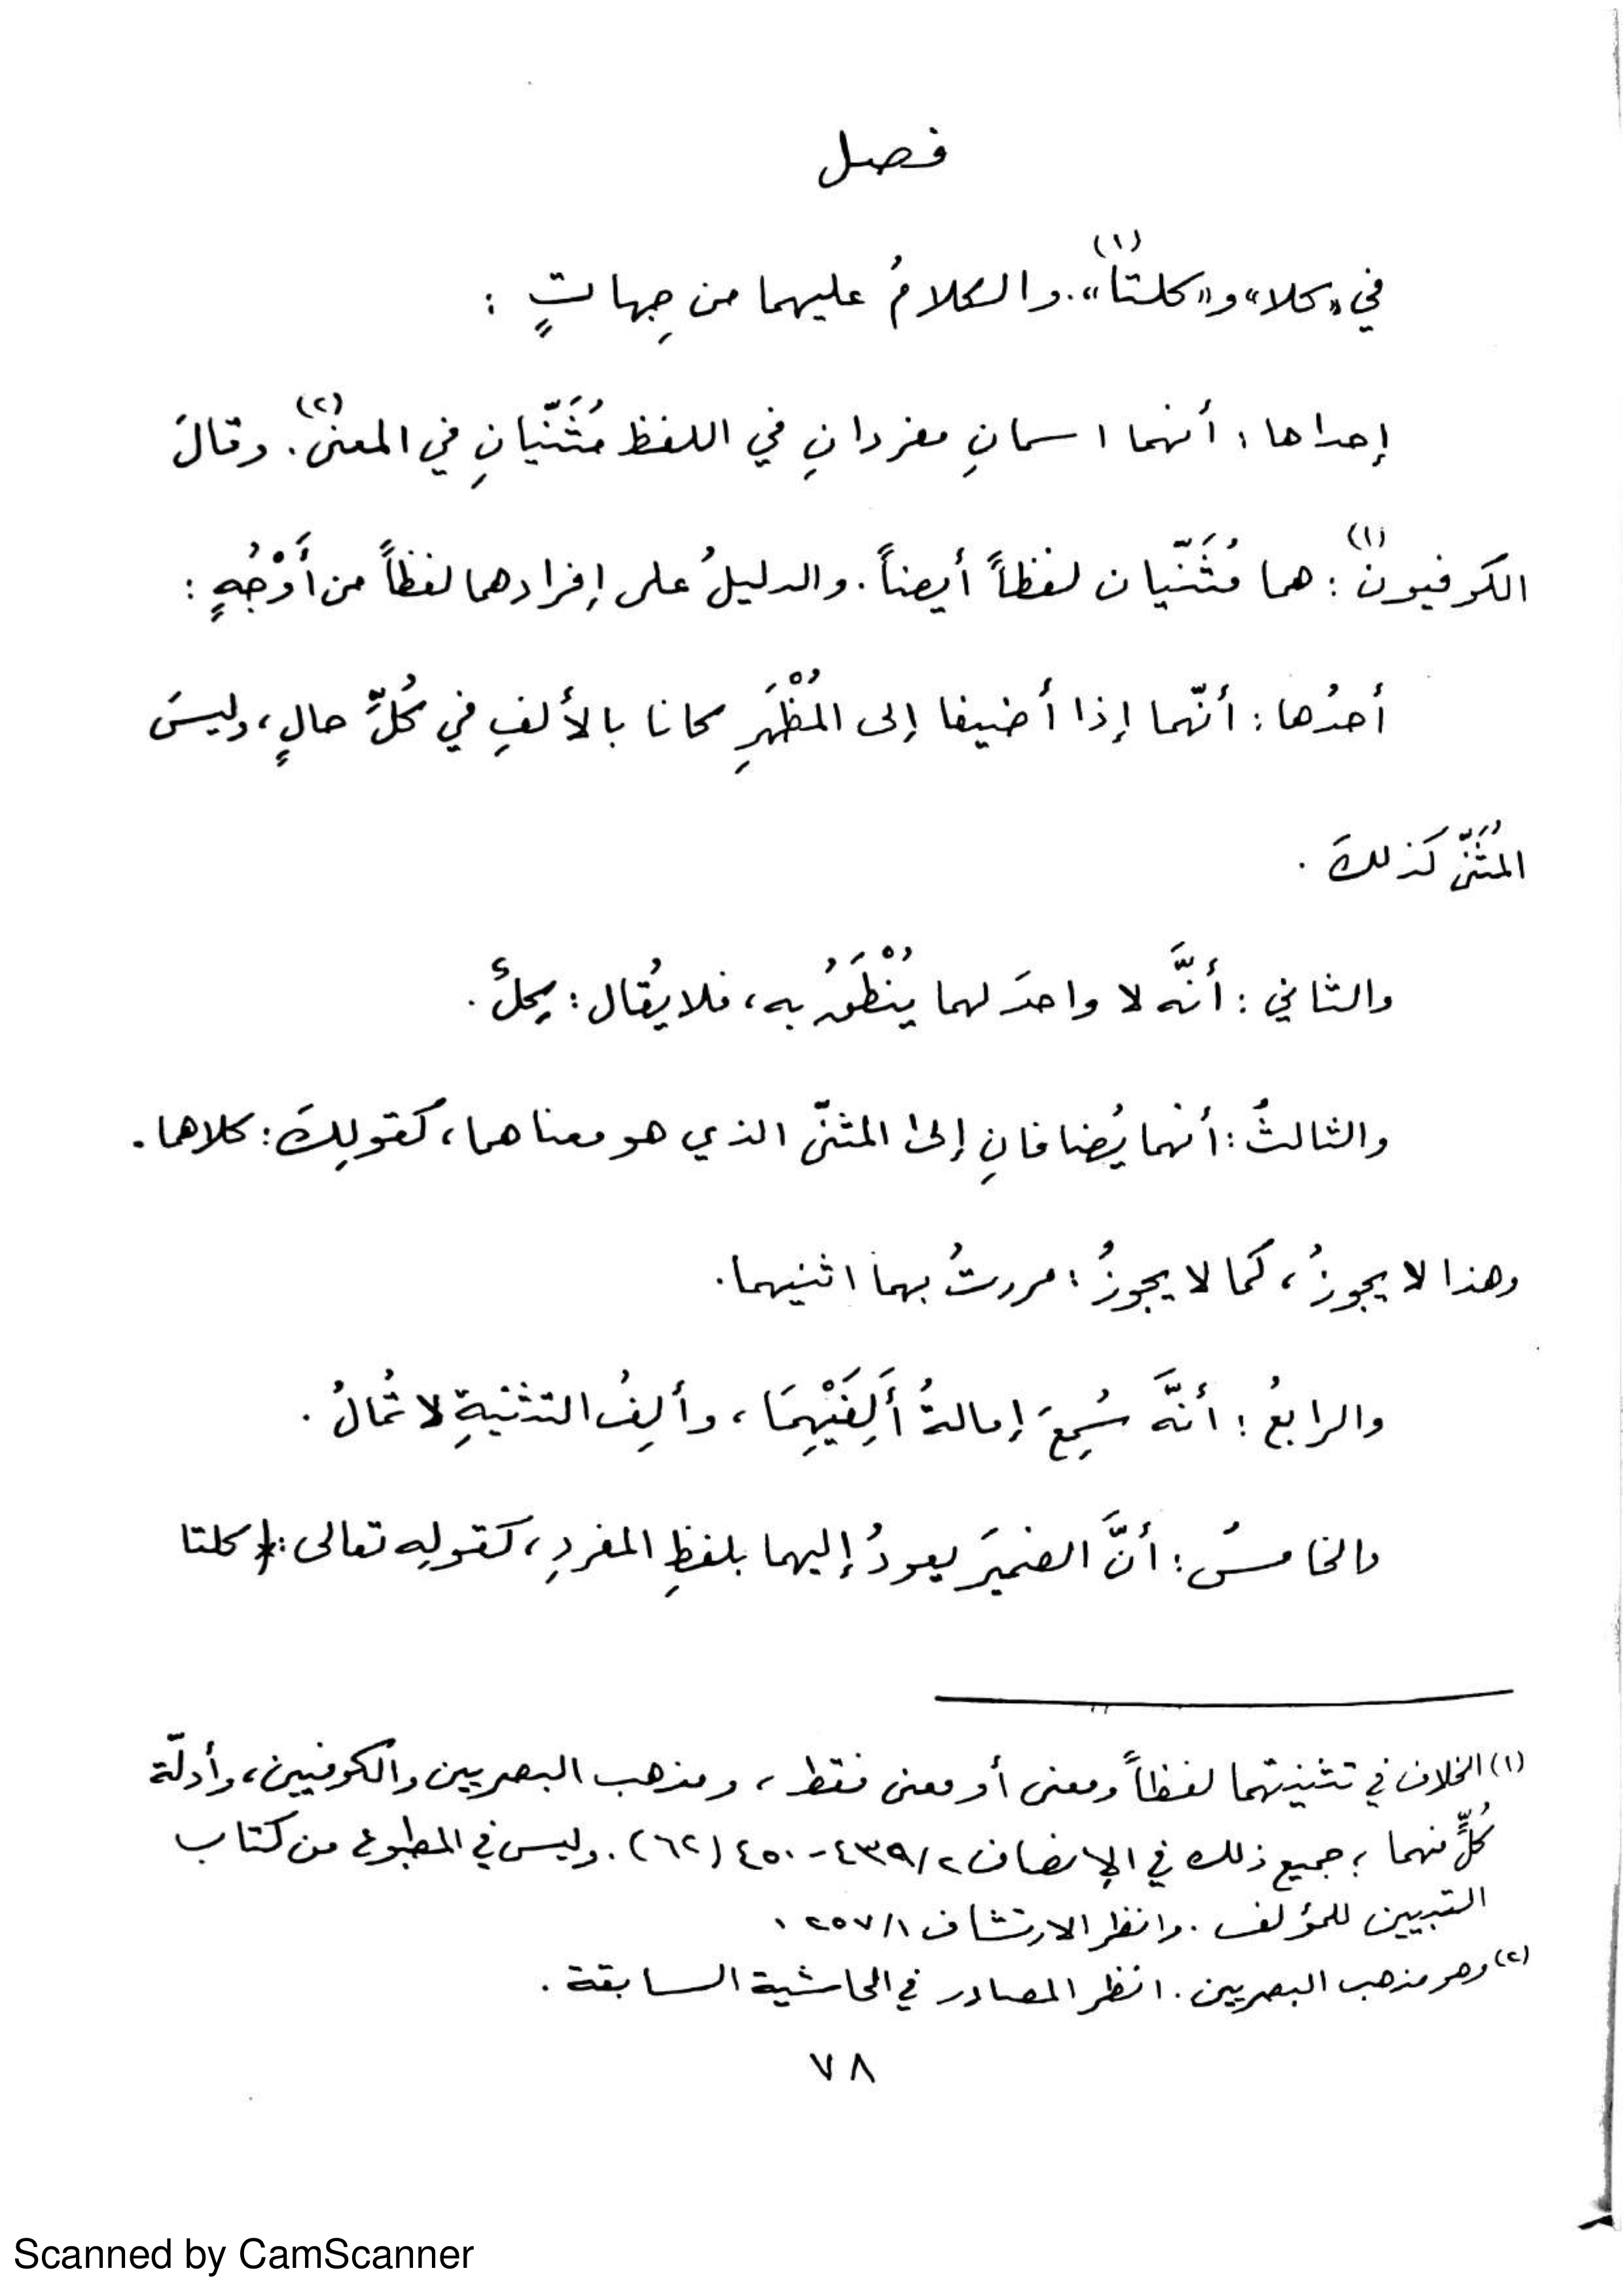 فصل
في «كلا» و«كلتا»(١). والكلامُ عليهما من جِهاتٍ :
إحداها : أنهما اسمانِ مفردانِ في اللفظ مُثَنّيانِ في المعنى(٢). وقالَ
الكوفيون(١) : هما مُثَنّيان لفظاً أيضاً. والدليلُ على إفرادهما لفظاً من أَوْجُهٍ :
أحدُها : أنّهما إذا أضيفا إلى المُظْهَرِ كانا بالألفِ في كُلِّ حالٍ، وليسَ
المُثَنّى كَذلكَ .
والثاني : أنَّه لا واحدَ لهما يُنْطَقُ به، فلا يُقال : كِلٌ .
والثالثُ : أنهما يُضافانِ إلى المثنّى الذي هو معناهما، كَقولِكَ : كلاهما.
وهذا لا يجوزُ، كما لا يجوزُ : مررتُ بهما اثنيهما.
والرابعُ : أنَّه سُمِعَ إمالةُ أَلِفَيْهِمَا، وألِفُ التثنيةِ لا تُمالُ .
والخامسُ : أنَّ الضميرَ يعودُ إليهما بلفظِ المفردِ، كَقولِه تعالى : ﴿كلتا
(١) الخلاف في تثنيتهما لفظاً ومعنى أو معنى فقط، ومذهب البصريين والكوفيين، وأدلّة
كُلٍّ منهما ؛ جميع ذلك في الإنصاف ٢/ ٤٣٩-٤٥٠ (٦٢). وليس في المطبوع من كتاب
التبيين للمؤلف . وانظر الارتشاف ١/ ٢٥٧ .
(٢) وهو مذهب البصريين. انظر المصادر في الحاشية السابقة .
٧٨
Scanned by CamScanner